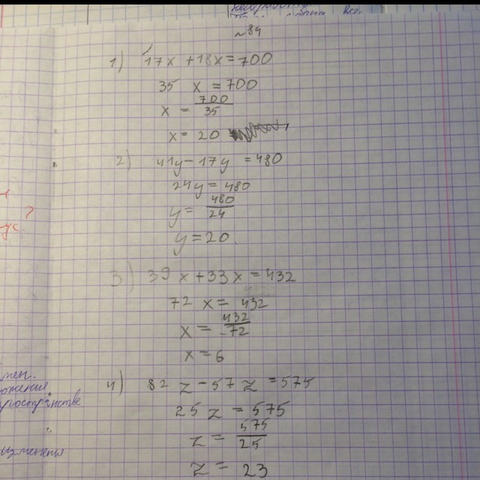 №84
1) 17x + 18x = 700
35 x = 700
x = 700/35
x = 20
2) 41y - 17y = 480
24y = 480
y = 480/24
y = 20
3) 39x + 33x = 432
72 x = 432
x = 432/72
x = 6
4) 82 z - 57 z = 575
25 z = 575
z = 575/25
z = 23